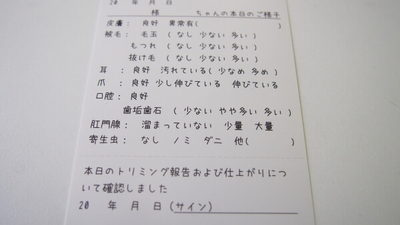 20 年 月 日
様 ちゃんの本日のご様子
皮膚: 良好 異常有( )
被毛: 毛玉 (なし 少ない 多い)
もつれ (なし 少ない 多い)
抜け毛 (なし 少ない 多い)
耳: 良好 汚れている(少なめ 多め)
爪: 良好 少し伸びている 伸びている
口腔: 良好
歯垢歯石 (少ない やや多い 多い)
肛門腺: 溜まっていない 少量 大量
寄生虫: なし ノミ ダニ 他( )
本日のトリミング報告および仕上がりにつ
いて確認しました
20 年 月 日 (サイン)